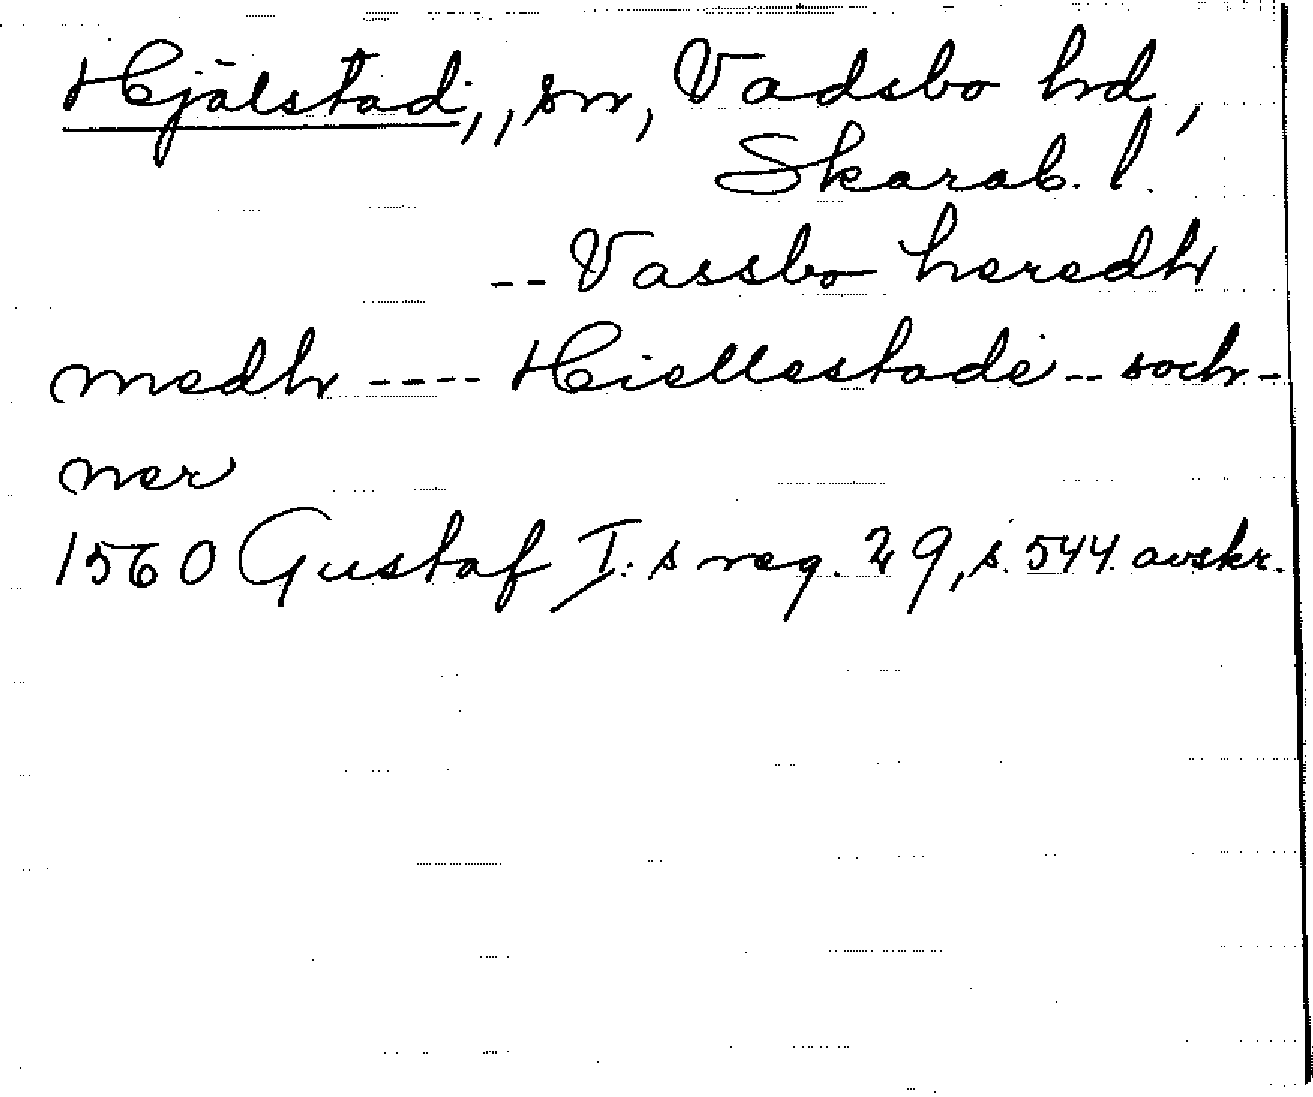 Hjälstad,, sn, Vadsbo hd,
Skarab. l.
-- Vassbo heredh
medh ---- Hiellestade -- soch-
ner
1560 Gustaf I:s reg. 29, s. 544 avskr.